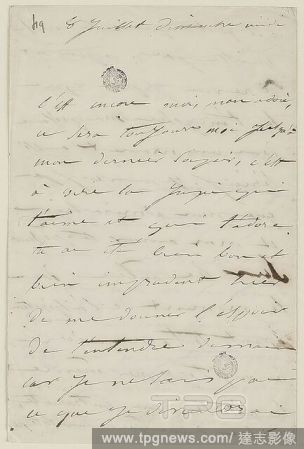 8 Juillet dimanche midi
C'est encore moi, mon adoré,
ce sera toujours moi jusqu'à
mon dernier soupir, c'est
à dire la Juju qui
t'aime et qui t'adore.
tu as été bien bon et
bien imprudent hier
de me donner l'espoir
de t'entendre
car je ne sais pas
ce que je
TPG
www.tpgnews.com/達志影像